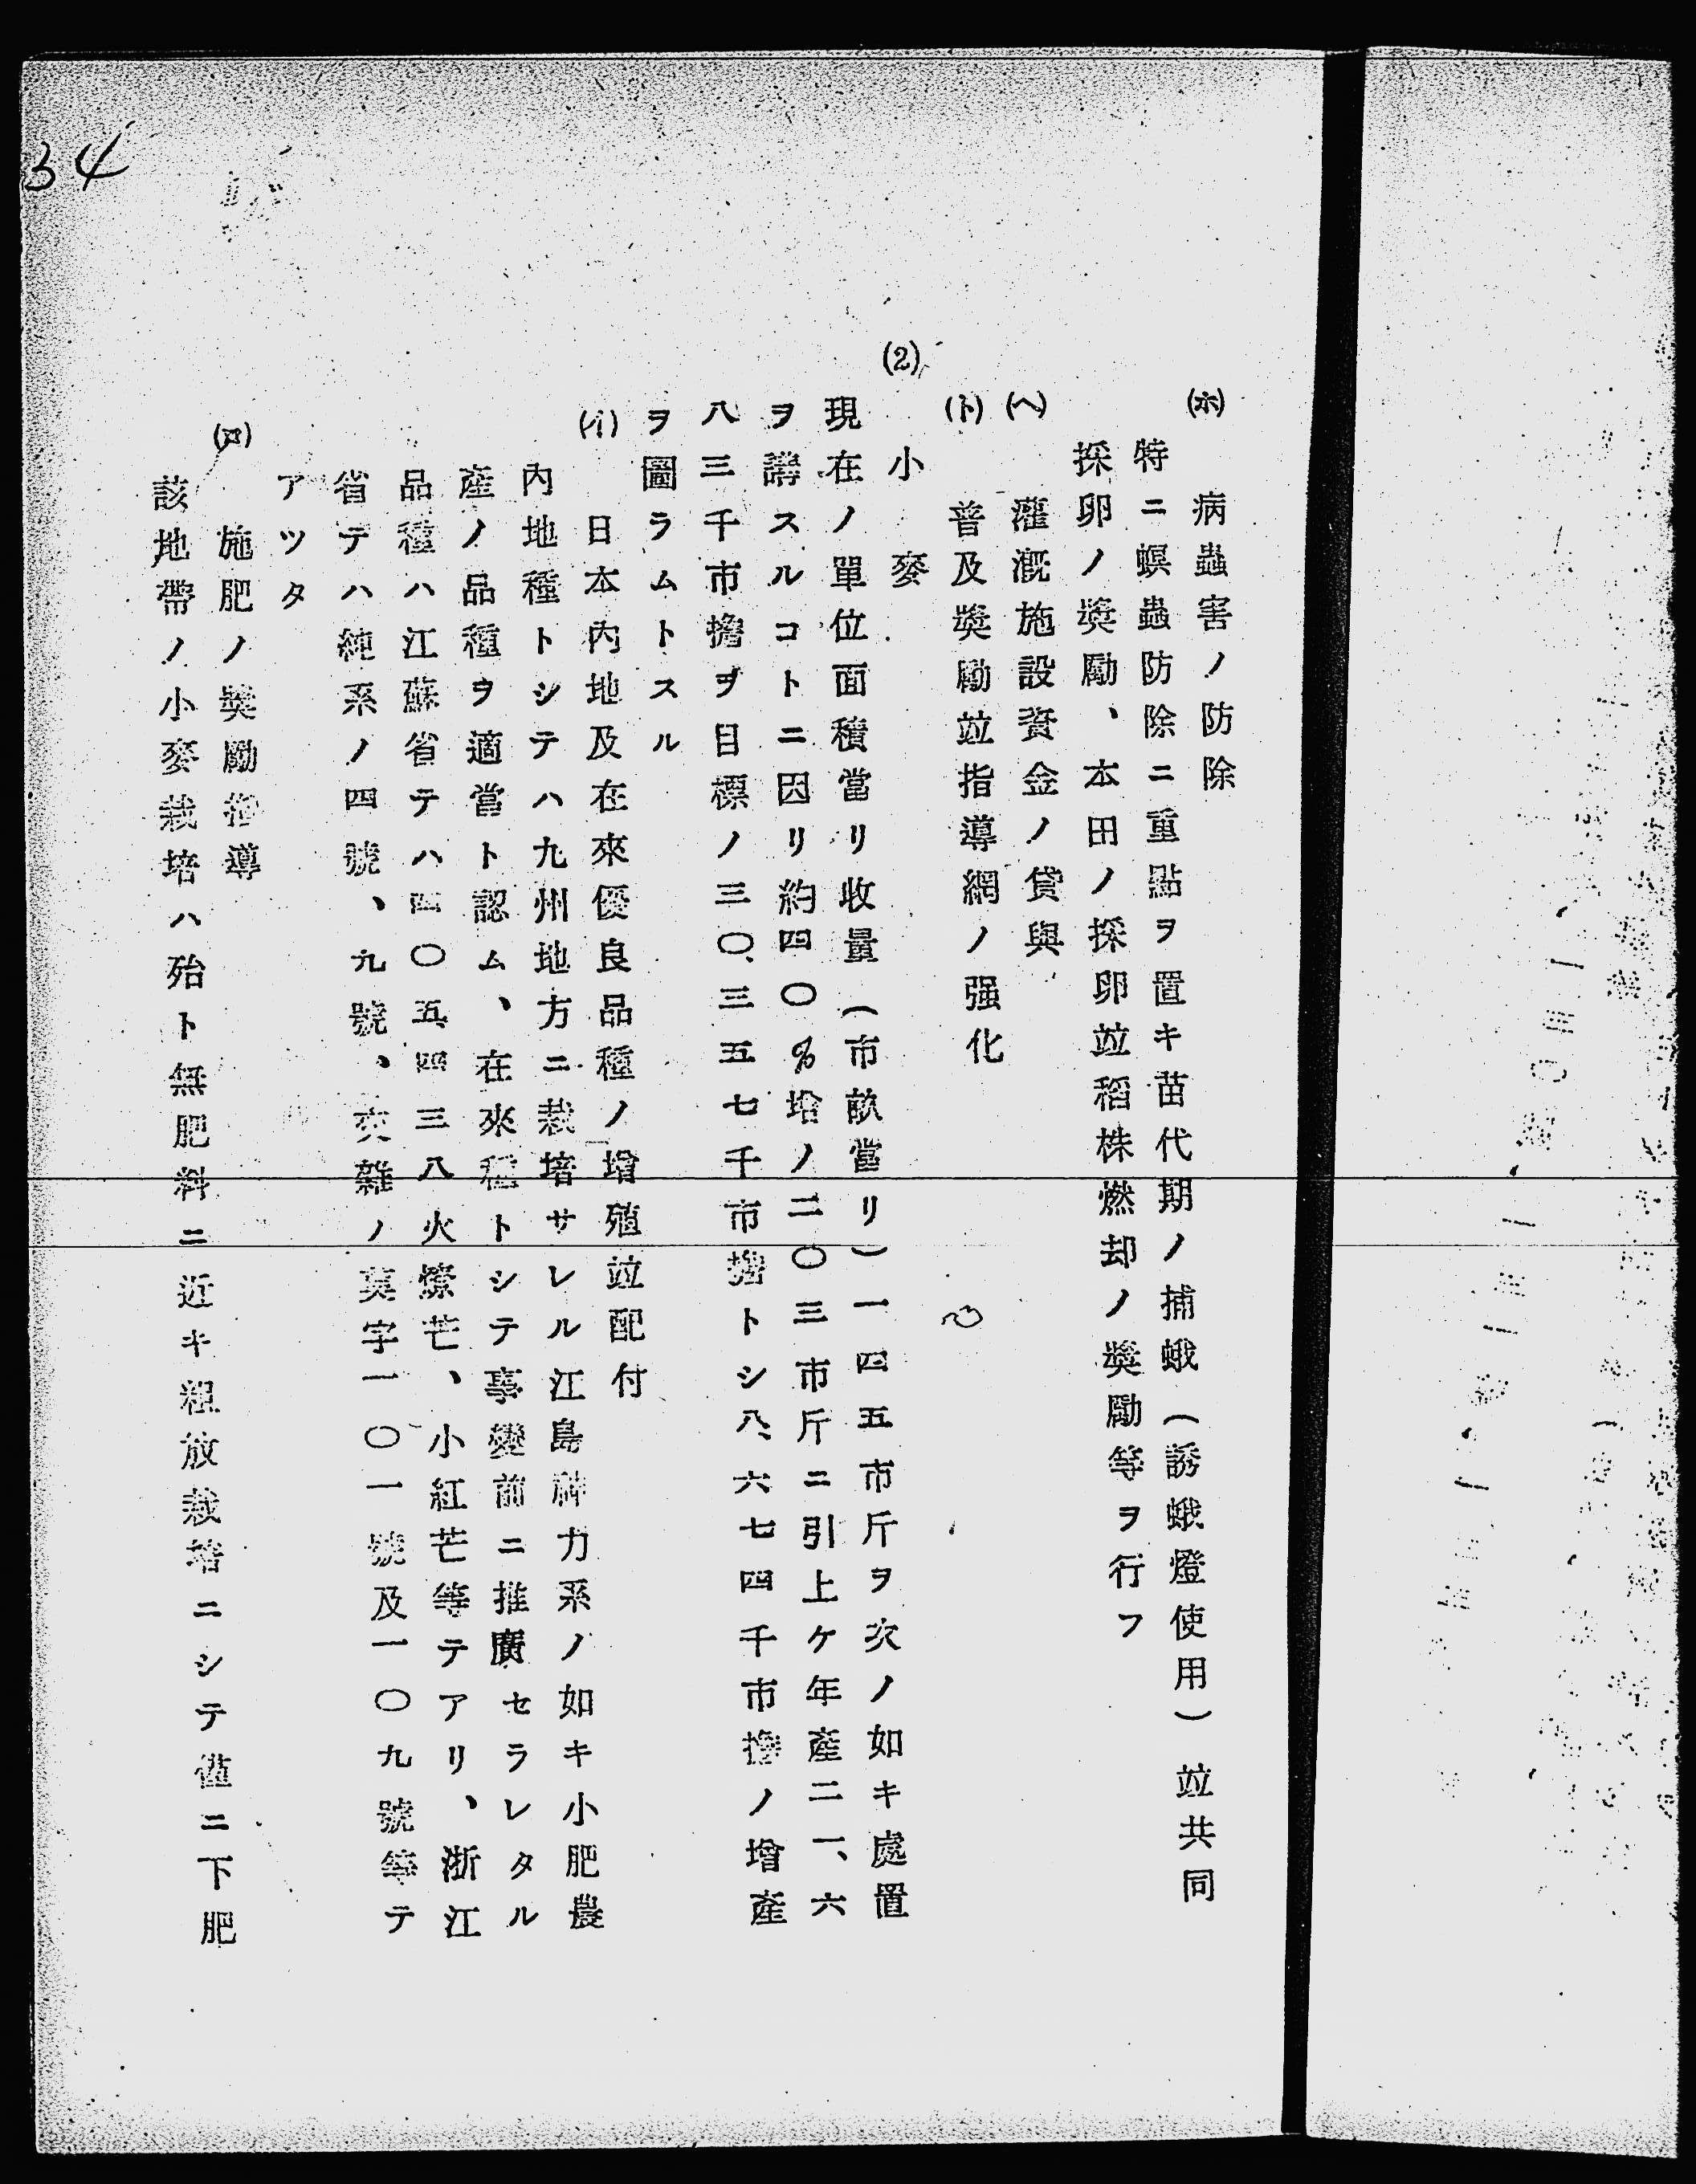 34
(ホ) 病蟲害ノ防除
特ニ螟蟲防除ニ重點ヲ置キ苗代期ノ捕蛾(誘蛾燈使用)竝共同
採卵ノ奬勵、本田ノ採卵竝稻株燃却ノ奬勵等ヲ行フ
(ヘ) 灌漑施設資金ノ貸與
(ト) 普及奬勵竝指導網ノ强化
(2) 小麥
現在ノ單位面積當リ收量(市畝當リ)一四五市斤ヲ次ノ如キ處置
ヲ講スルコトニ因リ約四〇%增ノ二〇三市斤ニ引上ケ年產二一、六
八三千市擔ヲ目標ノ三〇、三五七千市擔トシ八、六七四千市擔ノ增產
ヲ圖ラムトスル
(イ) 日本內地及在來優良品種ノ增殖竝配付
內地種トシテハ九州地方ニ栽培サレル江島神力系ノ如キ小肥農
產ノ品種ヲ適當ト認ム、在來種トシテ事變前ニ推廣セラレタル
品種ハ江蘇省テハ四〇五四三八火燎芒、小紅芒等テアリ、浙江
省テハ純系ノ四號、九號、交雜ノ莫字一〇一號及一〇九號等テ
アツタ
(ロ) 施肥ノ奬勵指導
該地帶ノ小麥栽培ハ殆ト無肥料ニ近キ粗放栽培ニシテ僅ニ下肥